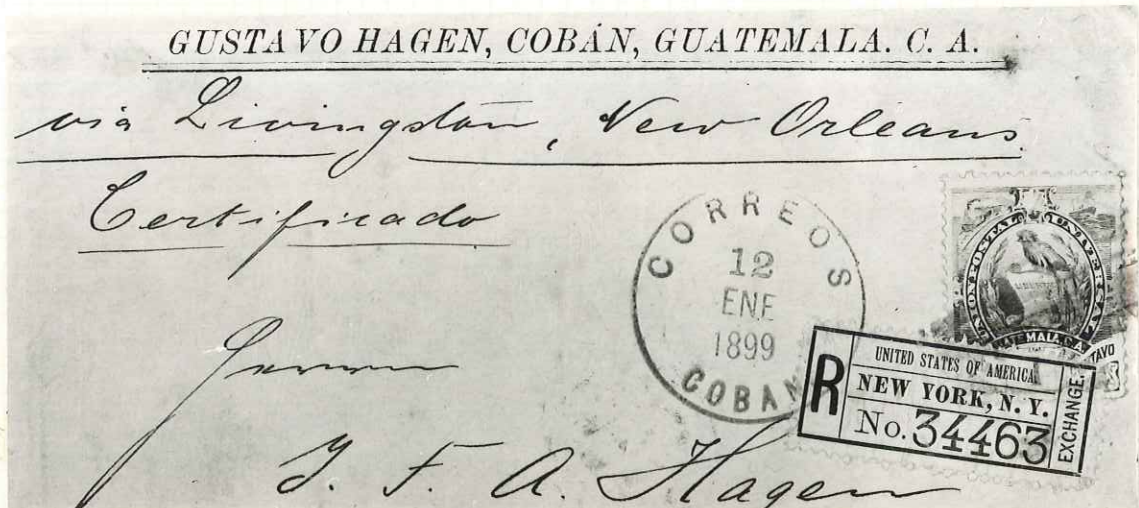 GUSTAVO HAGEN, COBÁN, GUATEMALA. C. A.
via Livingston, New Orleans.
Certificado
CORREOS
12
ENE
1899
COBAN
UNION POSTAL UNIVERSAL
GUATEMALA C.A.
R
UNITED STATES OF AMERICA.
NEW YORK, N. Y.
No. 34463
EXCHANGE.
Herrn
J. F. A. Hagen